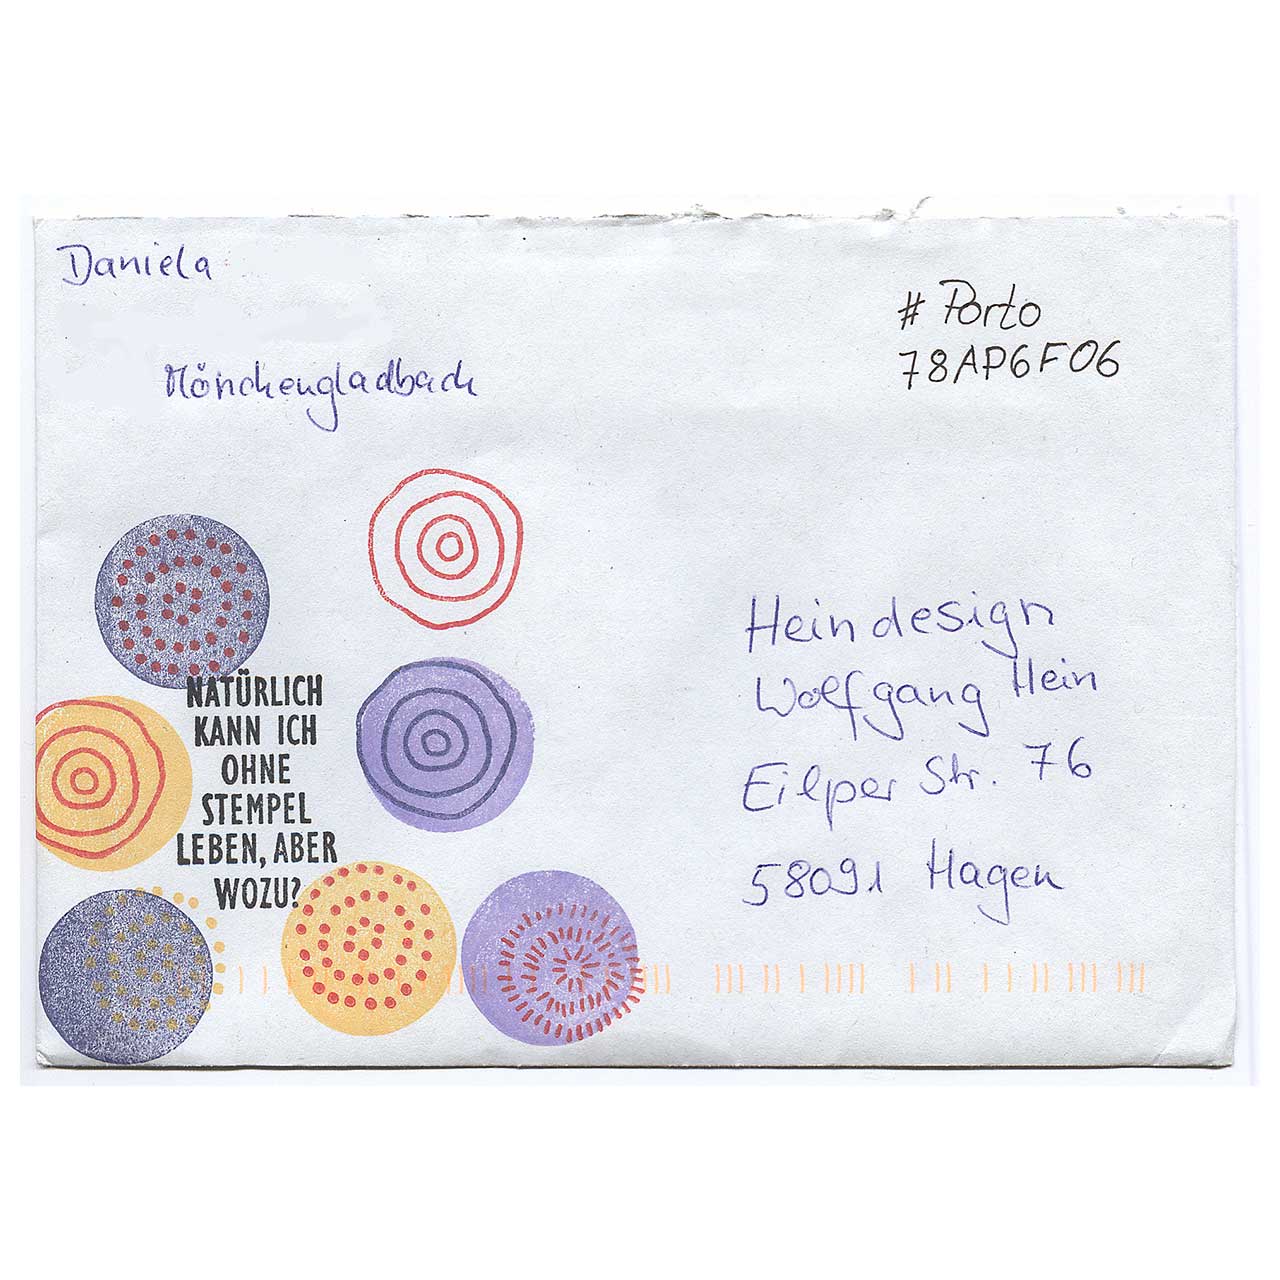 Daniela
Mönchengladbach
# Porto
78AP6F06
NATÜRLICH
KANN ICH
OHNE
STEMPEL
LEBEN, ABER
WOZU?
Heindesign
Wolfgang Hein
Eilper Str. 76
58091 Hagen